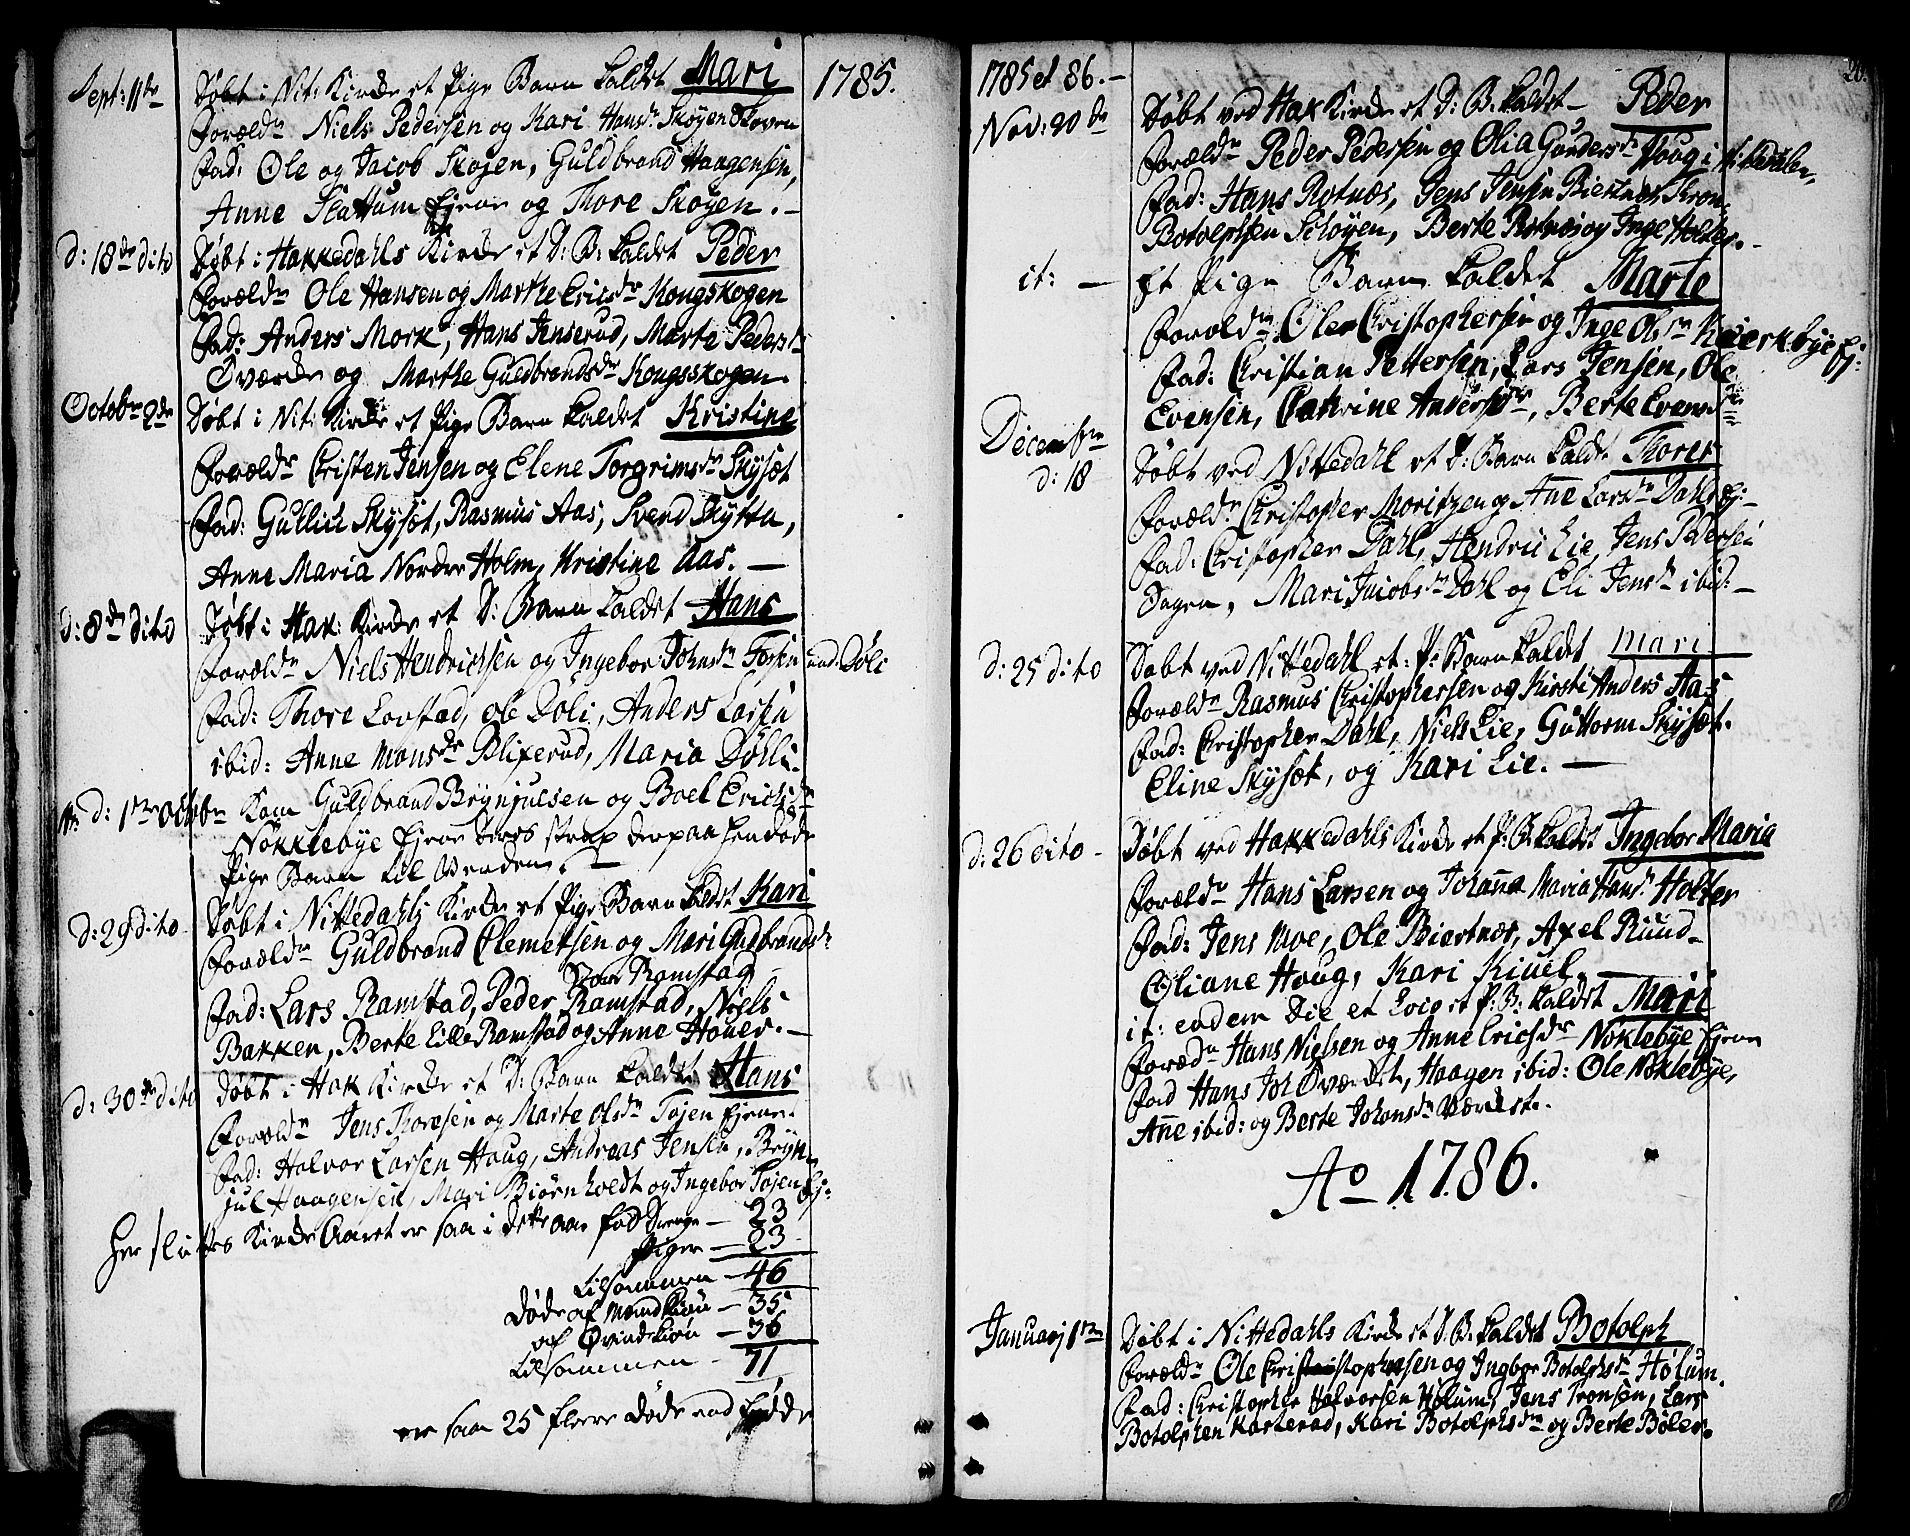 1785.
Sept: 11te Døbt i Nit: Kirche et Pige Barn kaldet Mari
Foræld: Niels Pedersen og Kari Hansdr Skøyen Skoven
Fad: Ole og Jacob Skøyen, Guldbrand Haagensen,
Anne Slattum Ejere og Thore Skøyen. -
d: 18de dito Døbt i Hakkedahls Kirche et D: B: kaldet Peder
Foræld: Ole Hansen og Marthe Ericsdr Kongskogen
Fad: Anders Mork, Hans Jenserud, Marte Pedersdr
Øværde og Marthe Guldbrandsdr Kongsskogen
Octobr 2de Døbt i Nit: Kirche et Pige Barn kaldet Kristine
Foræld: Christen Jensen og Elene Torgrimsdr Skysæt
Fad: Gullich Skysæt, Rasmus Aas, Svend Skytta,
Anne Maria Nordre Holm, Kristine Aas. —
d: 8de dito Døbt i Hak: Kirche et D: Barn kaldet Hans
Foræld: Niels Hendrichsen og Ingebor Johnsdr und: Døli
Fad: Thore Lovstad, Ole Døli, Anders Larsen
ibid: Anne Monsdr Blixerud, Maria Dølli.
d: 1ste Octobr Kom Guldbrand Brynjulsen og Boel Erichsdr
Nøkklebye Ejere deres strax derpaa hendøde
Pige Barn til Verden. —
d: 29 dito Døbt i Nittedahls Kirche et Pige Barn kaldet Kari
Foræld: Guldbrand Clemetsen og Mari Guldbrandsdr
Store Ramstad
Fad: Lars Ramstad, Peder Ramstad, Niels
Bakken, Berte Lille Ramstad og Anne Høuer. -
d: 30te dito Døbt i Hak Kirche et D: Barn kaldet Hans
Foræld: Jens Thoresen og Marte Olsdr Tøjen Ejere.
Fad: Halvor Larsen Houg, Andreas Jensen, Bryn-
jul Haagensen, Mari Biørnholdt og Ingebor Tøjen Ej:
Her sluttes Kirche Aaret er saa i dette aar fød Drenge — 23
Piger — 23
Tilsammen — 46
Døde af Mandkiøn — 35
af Qvindekiøn — 36
Tilsammen — 71
er saa 25 flere døde end fødde
1785 et 86. -
Nov: 20de Døbt ved Hak Kirche et D: B: kaldet Peder
Foræld: Peder Pedersen og Olia Gundersdr Houg i
Fad: Hans Rotnæs, Jens Jensen Biertnæs, Tron
Botolphsen Schøyen, Berte Rotnæs og Inge Holter. -
it: — Et Pige Barn kaldet Marte
Foræld: Ole Christophersen og Inge Olsdr Kierkebye Ej:
Fad: Christian Pettersen, Lars Jensen, Ole
Evensen, Cathrine Andersdr, Berte Evensdr
Decembr d: 18 Døbt ved Nittedahl et D: Barn kaldt Thorer
Foræld: Christopher Moritzen og Ane Larsdr Dahl Ej-
Fad: Christopher Dahl, Hendric Lie, Jens Pedersen
Mari Jacobsdr Dahl og Eli Jensdr ibid: -
d: 25 dito Døbt ved Nittedahl et: P: Barn kaldet Mari
Foræld: Rasmus Christophersen og Kirsti Anders Aas
Fad: Christopher Dahl, Niels Lie, Guttorm Skysæt.
Eline Skysæt, og Kari Lie. —
d: 26 dito - Døbt ved Hakkedahls Kirche et P: B: kaldet Ingebor Maria
Foræld: Hans Larsen og Johanna Maria Hansdr Holter
Fad: Jens Moe, Ole Biertnæs, Axel Ruud-
Oliane Houg, Kari Kiuel. —
it: eadem Die et Loco et P: B: kaldet Mari
Foræld: Hans Nielsen og Anne Ericsdr Nøklebye Ejere
Fad Hans Joh Øværdet, Haagen ibid: Ole Nøklebye,
Anne ibid: og Berte Johansdr Værdet.
Ao 1786.
Januarj 1te Døbt i Nittedahls Kirche et D: B: kaldet Botolph
Foræld: Ole Christophersen og Ingbor Botolphsdr Hølum.
Fad: Christopher Halvorsen Hølum, Jens Tronsen, Lars
Botolphen Karterud, Kari Botolphsdr og Berte Bøler.